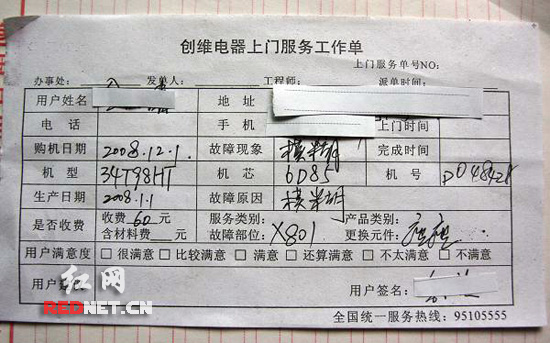 创维电器上门服务工作单
上门服务单号NO:
办事处: 发单人: 工程师: 派单时间:
用户姓名 地址
电话 手机 上门时间
购机日期 2008.12.1 故障现象 模糊 完成时间
机型 34T98HT 机芯 6D85 机号
生产日期 2008.1.1 故障原因 模糊
是否收费 收费 60 元 服务类别: 产品类别:
含材料费 元 故障部位: X801 更换元件:
用户满意度 □很满意 □比较满意 □满意 □还算满意 □不太满意 □不满意
用户 用户签名:
红网
REDNET.CN
全国统一服务热线: 95105555